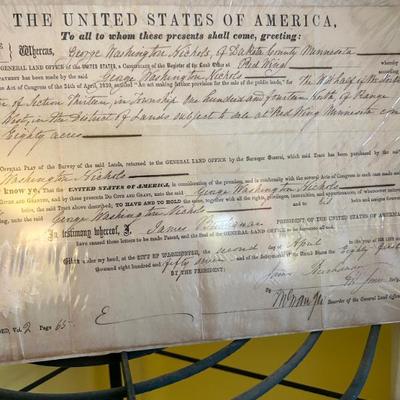 THE UNITED STATES OF AMERICA,
To all to whom these presents shall come, greeting:
Whereas, George Washington Nichols, of Dakota County Minnesota
GENERAL LAND OFFICE OF THE UNITED STATES, a Certificate of the Register of the Land Office at Red Wing whereby
PAYMENT has been made by the said George Washington Nichols according
Act of Congress of the 24th of April, 1820, entitled "An act making further provision for the sale of the public lands," for The West half of the
of Section Thirteen, in Township one hundred and fourteen North, of Range
West, in the District of Lands subject to sale at Red Wing Minnesota con
Eighty acres
OFFICIAL PLAT of the Survey of the said Lands, returned to the GENERAL LAND OFFICE by the Surveyor General, which said Tract has been purchased by
Washington Nichols
know ye, That the UNITED STATES OF AMERICA, in consideration of the premises, and in conformity with the several acts of Congress in such case made
GIVEN AND GRANTED, and by these presents DO GIVE AND GRANT, unto the said George Washington Nichols
heirs, the said Tract above described, TO HAVE AND TO HOLD the same, together with all the rights, privileges, immunities, and appurtenances, of whatsoever nature
unto the said George Washington Nichols and to his heirs and assigns
In testimony whereof, I, James Buchanan PRESIDENT OF THE UNITED STATES OF AMERICA
have caused these letters to be made Patent, and the Seal of the GENERAL LAND OFFICE to be hereunto affixed.
under my hand, at the CITY OF WASHINGTON, the second day of April in the YEAR
thousand eight hundred and fifty seven of the Independence of the United States the Eighty first
BY THE PRESIDENT: James Buchanan
By
Recorder of the General Land Office
Vol. 2 Page 65